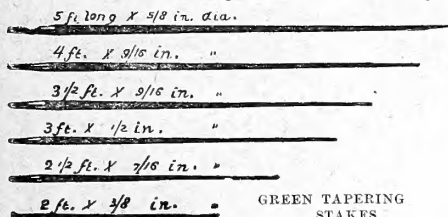 5 ft. long X 5/8 in. dia.
4 ft. X 9/16 in. "
3 1/2 ft. X 9/16 in. "
3 ft. X 1/2 in. "
2 1/2 ft. X 7/16 in. "
2 ft. X 3/8 in. "
GREEN TAPERING
STAKES